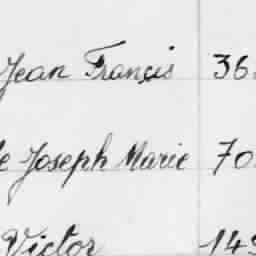 Jean Françis 36
e Joseph Marie 70
Victor 149